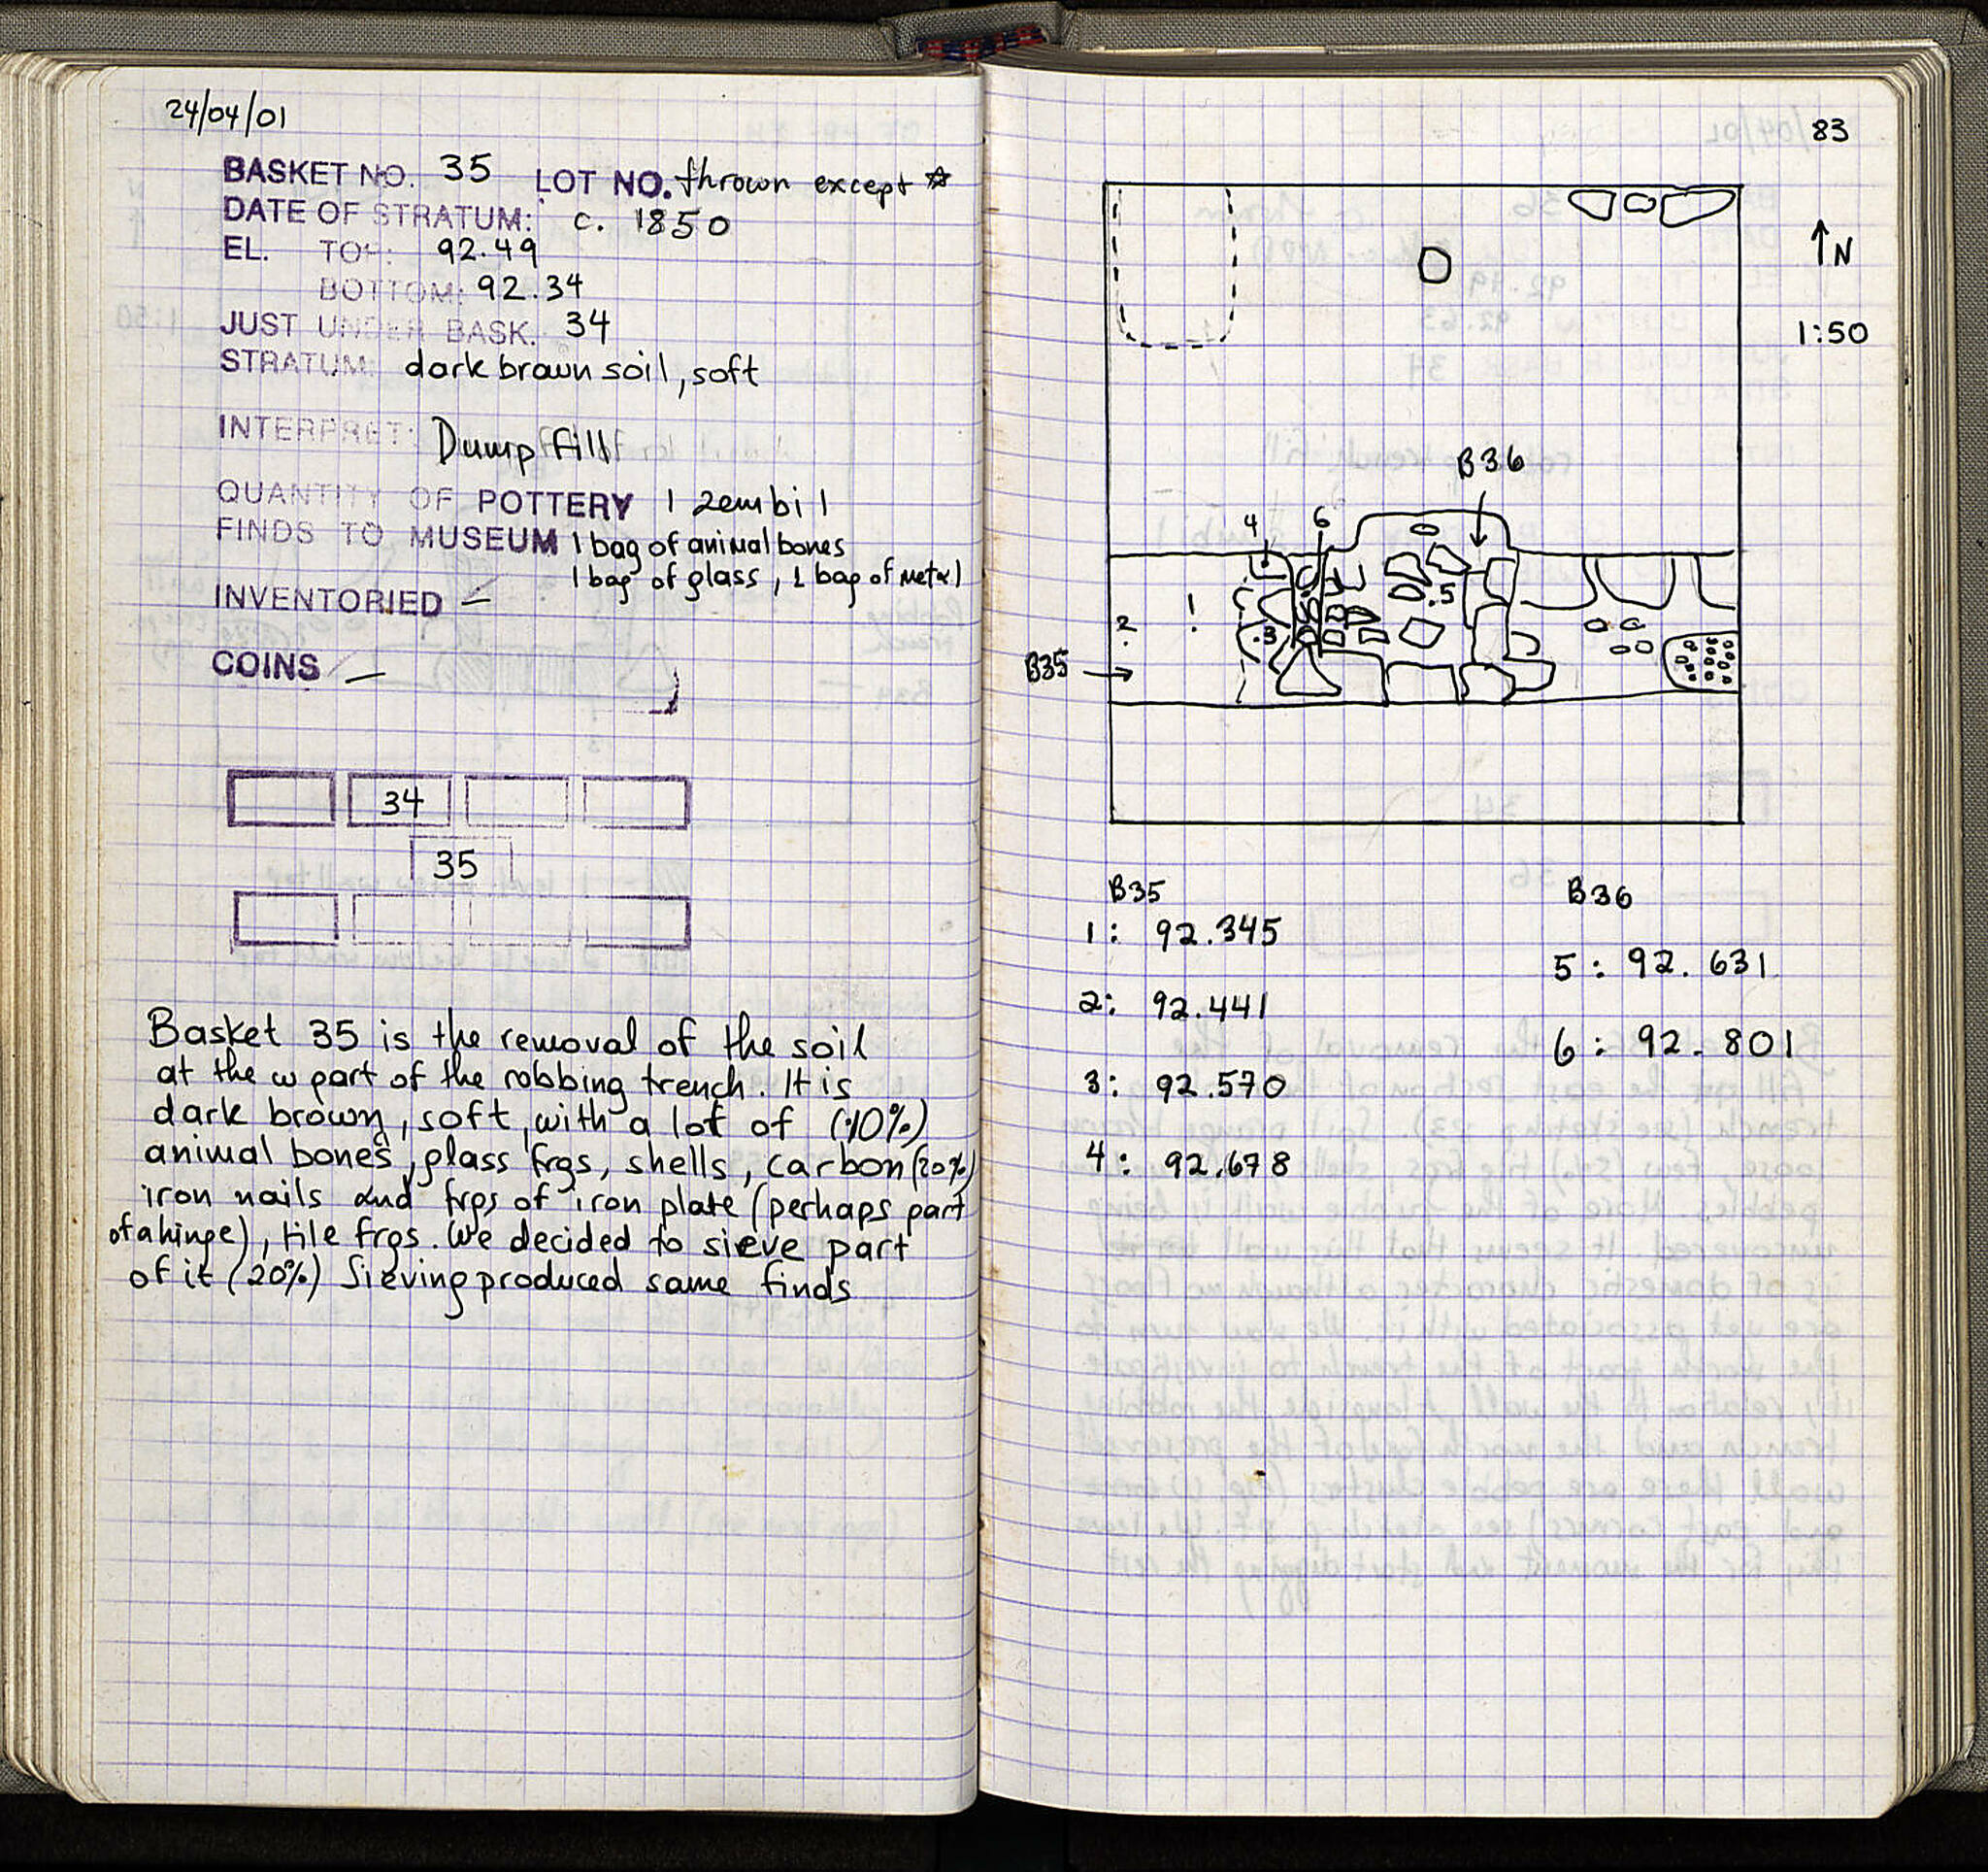 24/04/01
BASKET NO. 35 LOT NO. thrown except ☆
DATE OF STRATUM: c. 1850
EL. TOP: 92.49
BOTTOM: 92.34
JUST UNDER BASK. 34
STRATUM: dark brown soil, soft
INTERPRET: Dump fill
QUANTITY OF POTTERY 1 zembil
FINDS TO MUSEUM 1 bag of animal bones
1 bag of glass, 1 bag of metal
INVENTORIED —
COINS —
34
35
Basket 35 is the removal of the soil
at the w part of the robbing trench. It is
dark brown, soft, with a lot of (10%)
animal bones, glass frgs, shells, carbon (20%)
iron nails and frgs of iron plate (perhaps part
of a hinge), tile frgs. We decided to sieve part
of it (20%) Sieving produced same finds
83
N
1:50
B36
4
6
.5
2
1
.3
B35
B35
1: 92.345
2: 92.441
3: 92.570
4: 92.678
B36
5: 92.631
6: 92.801